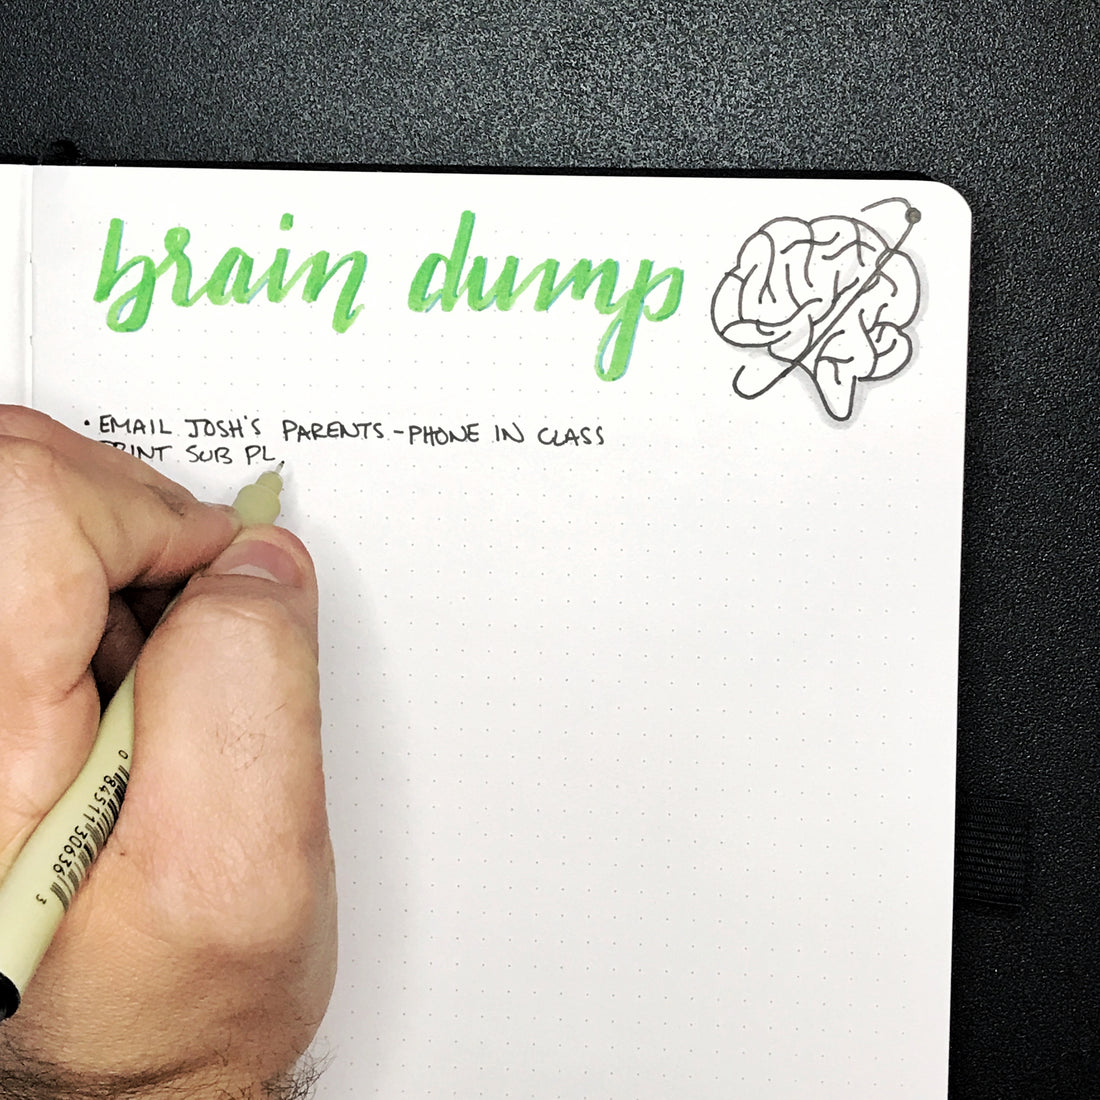 brain dump
· EMAIL JOSH'S PARENTS - PHONE IN CLASS
PRINT SUB PL
0 84511 30636 3